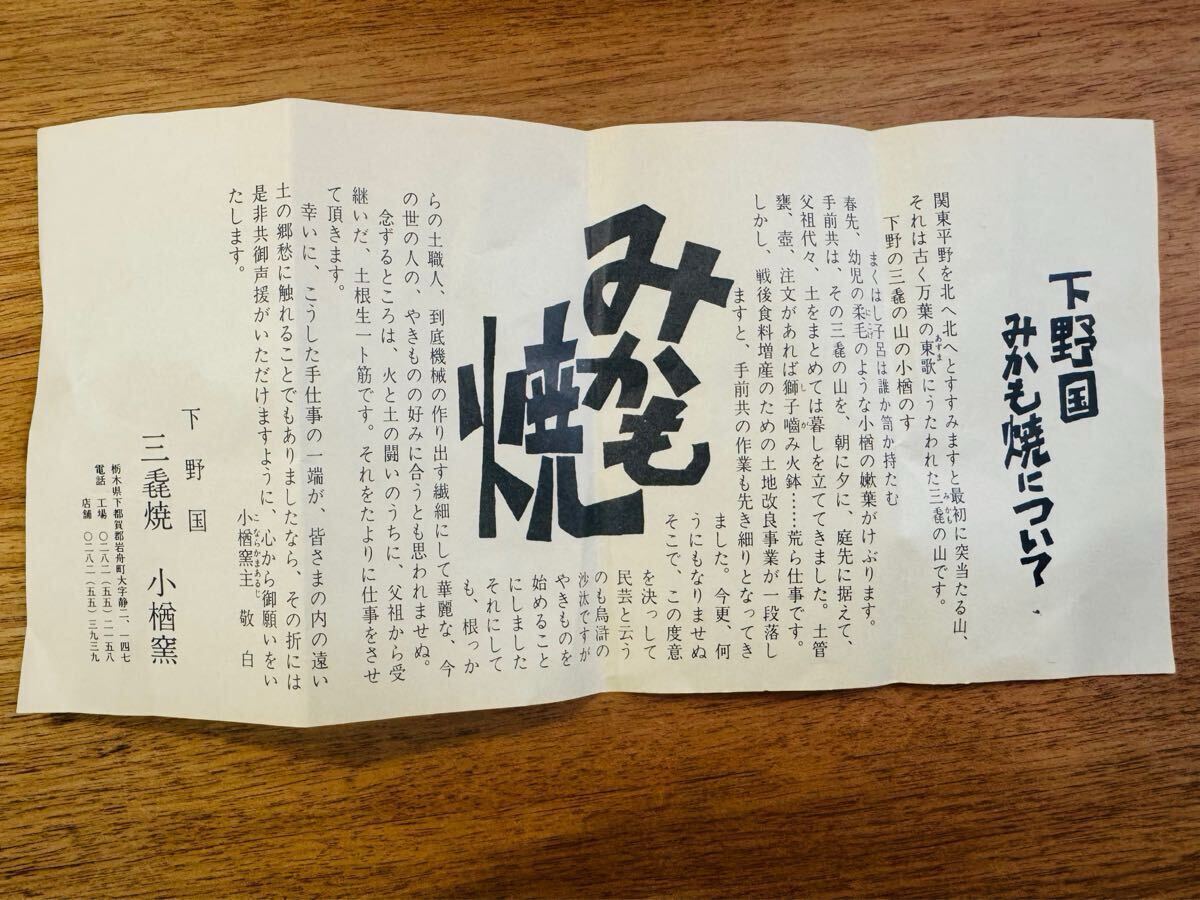 下野国
みかも焼について
関東平野を北へ北へとすすみますと最初に突当たる山、
それは古く万葉の東歌にうたわれた三毳の山です。
下野の三毳の山の小楢のす
まくはし子呂は誰か笥か持たむ
春先、幼児の柔毛のような小楢の嫩葉がけぶります。
手前共は、その三毳の山を、朝に夕に、庭先に据えて、
父祖代々、土をまとめては暮しを立ててきました。土管
甕、壺、注文があれば獅子嚙み火鉢……荒ら仕事です。
しかし、戦後食料増産のための土地改良事業が一段落し
ますと、手前共の作業も先き細りとなってき
ました。今更、何
うにもなりませぬ
そこで、この度意
を決っして
民芸と云う
のも烏滸の
沙汰ですが
やきものを
始めること
にしました
それにして
も、根っか
みかも
焼
らの土職人、到底機械の作り出す繊細にして華麗な、今
の世の人の、やきものの好みに合うとも思われませぬ。
念ずるところは、火と土の闘いのうちに、父祖から受
継いだ、土根生一ト筋です。それをたよりに仕事をさせ
て頂きます。
幸いに、こうした手仕事の一端が、皆さまの内の遠い
土の郷愁に触れることでもありましたなら、その折には
是非共御声援がいただけますように、心から御願いをい
たします。
小楢窯主 敬白
下野国
三毳焼 小楢窯
栃木県下都賀郡岩舟町大字静二、一四七
電話 工場 〇二八二(五五)二一五八
店舗 〇二八二(五五)三九三九